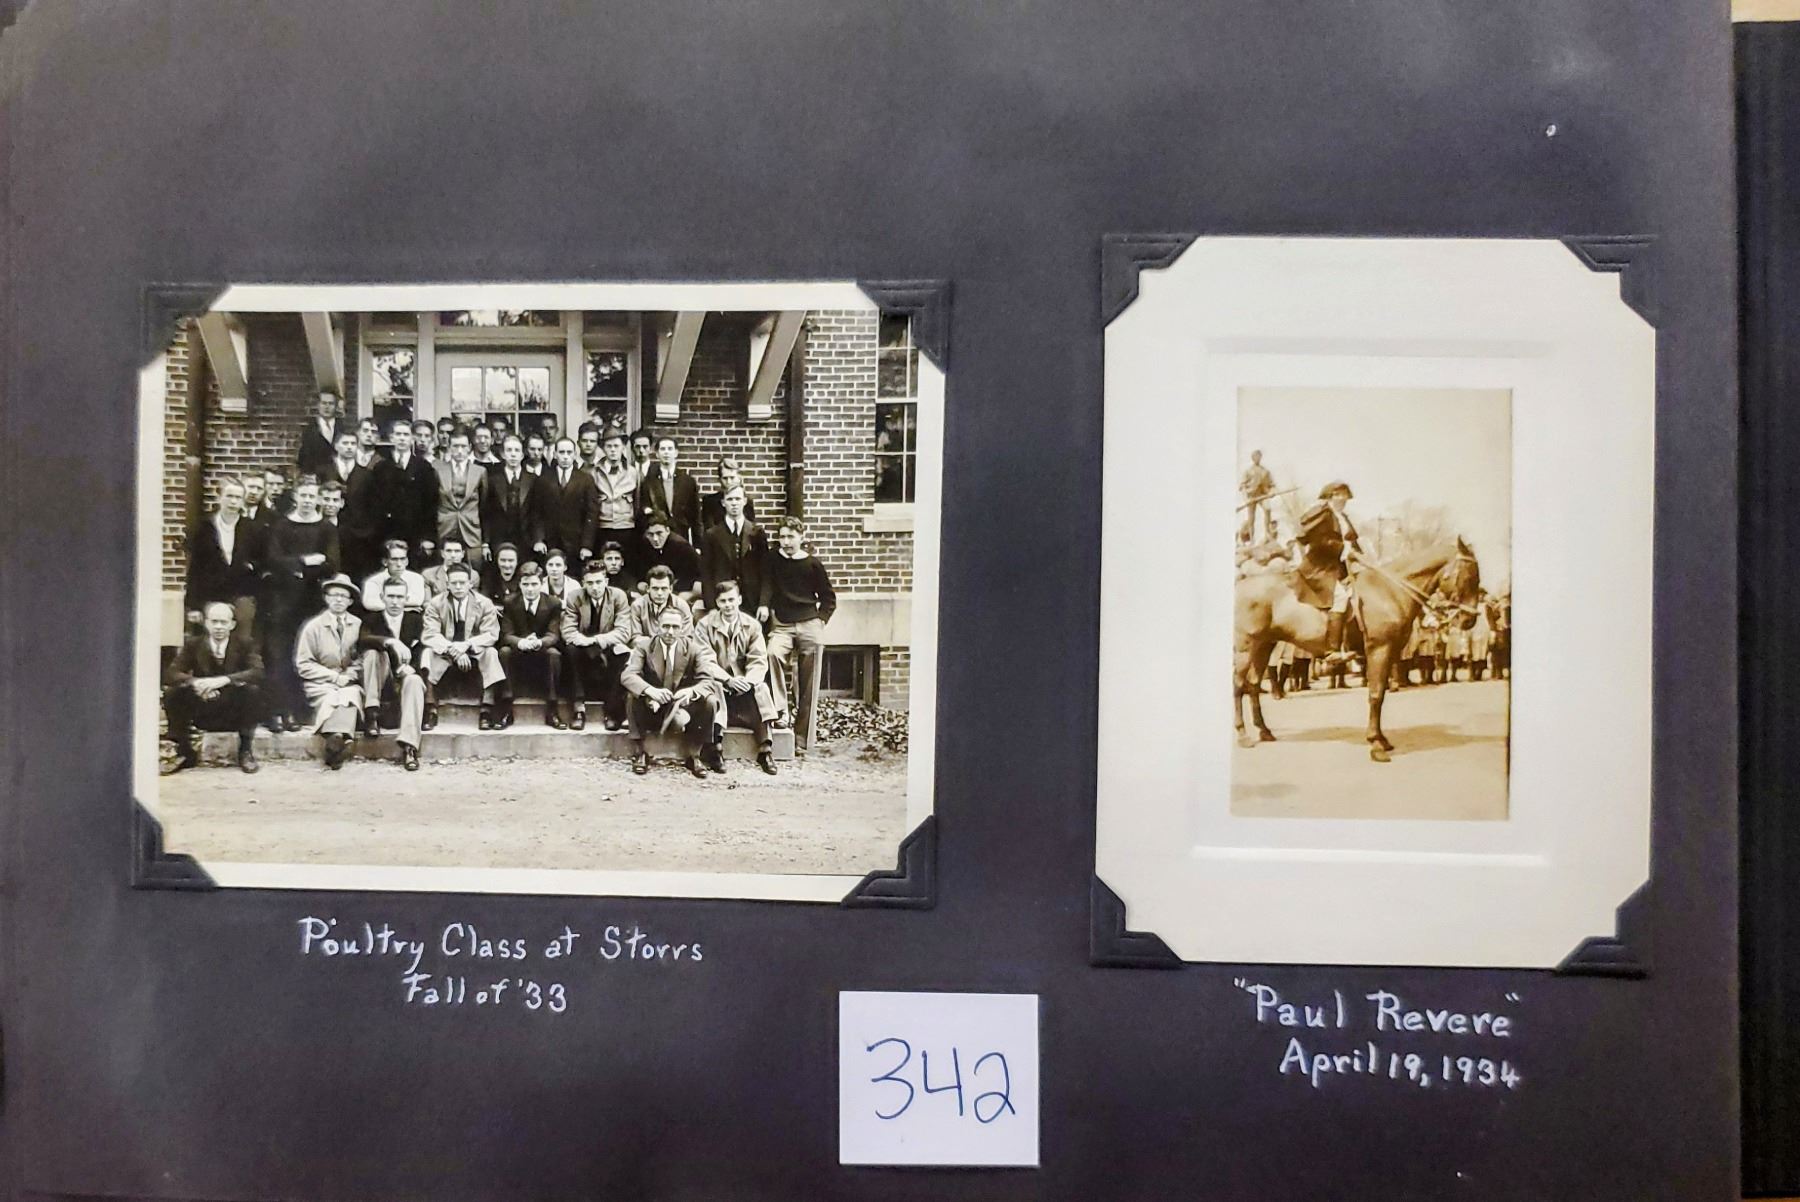 Poultry Class at Storrs
Fall of '33
342
"Paul Revere"
April 19, 1934